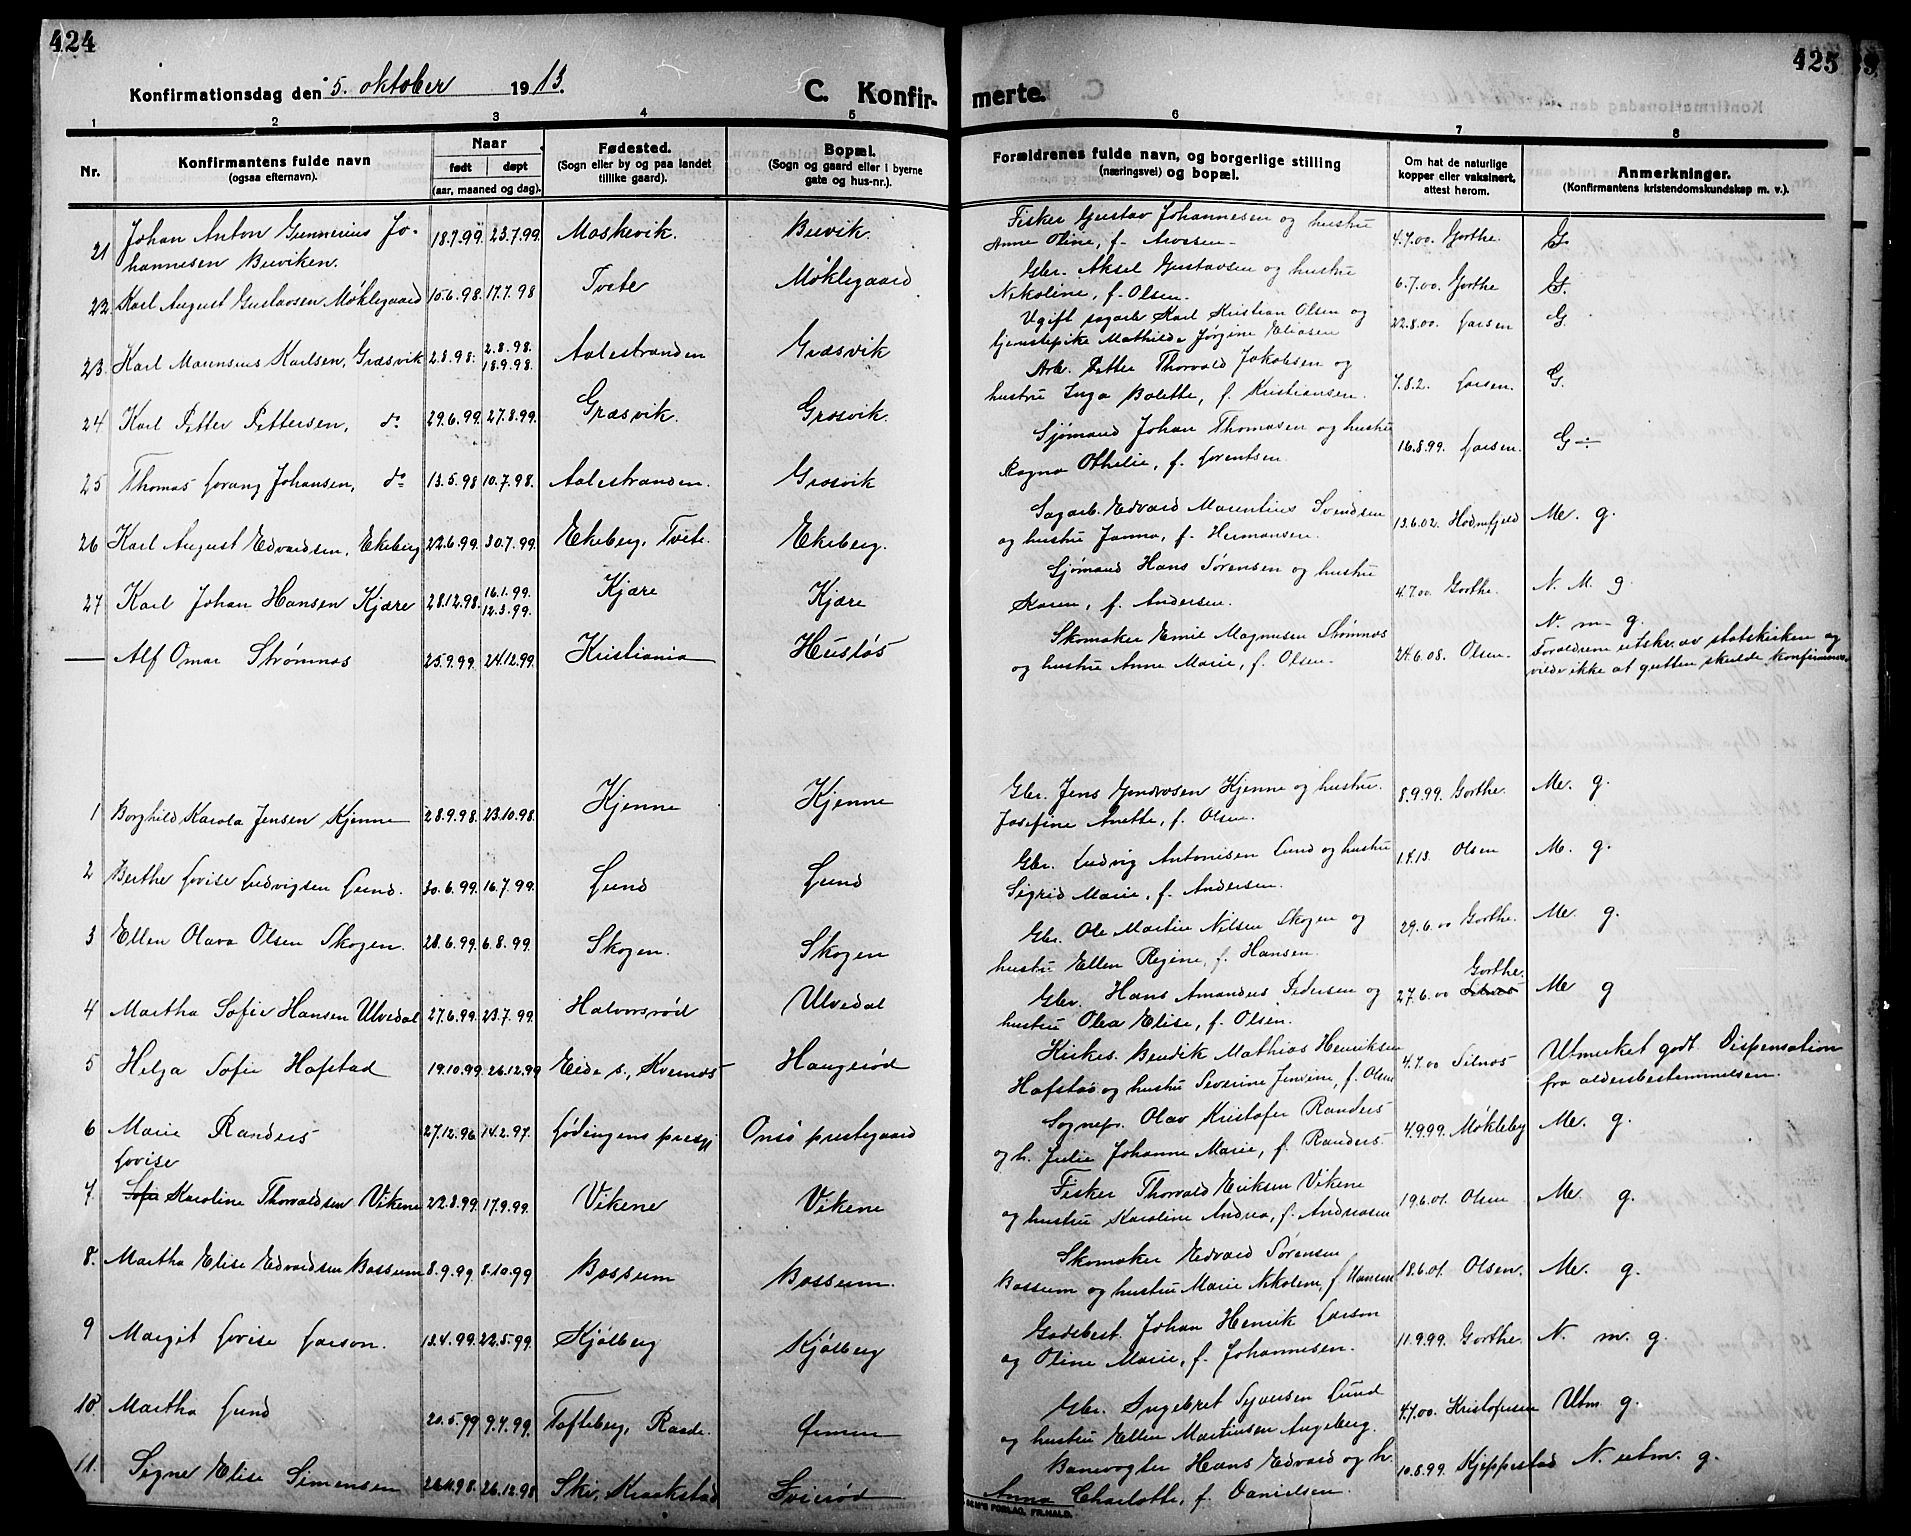 424
425
Konfirmationsdag den 5. oktober 1913.
C. Konfirmerte.
1 2 3 4 5 6 7 8
Nr.
Konfirmantens fulde navn
(ogsaa efternavn).
Naar
født døpt
(aar, maaned og dag).
Fødested.
(Sogn eller by og paa landet
tillike gaard).
Bopæl.
(Sogn og gaard eller i byerne
gate og hus-nr.).
Forældrenes fulde navn, og borgerlige stilling
(næringsvei) og bopæl.
Om hat de naturlige
kopper eller vaksinert,
attest herom.
Anmerkninger.
(Konfirmantens kristendomskundskap m. v.).
21 Johan Anton Gunnerius Jo-
hannesen Buviken. 18.7.99. 23.7.99. Moskevik. Buvik.
Fisker Gustav Johannesen og hustru
Anne Oline, f. 4.7.00. Gorthe. G.
22 Karl August Gustavsen Møklegaard 10.6.98. 17.7.98 Tvete Møklegaard
Gbr. Aksel Gustavsen og hustru
Nikoline, f. Olsen. 6.7.00. Gorthe G.
23. Karl Marensius Karlsen, Græsvik 2.8.98. 2.8.98. 18.9.98. Aalestranden Græsvik
Ugift sagarb. Karl Kristian Olsen og
tjenestepike Mathilde Jørgine Eliasen 22.8.00. Larsen G.
24 Karl Petter Pettersen, do 29.6.99. 27.8.99. Græsvik. Græsvik.
Arb. Petter Thorvald Jakobsen og
hustru Inga Bolette, f. Kristiansen. 7.8.2. Larsen. G.
25 Thomas Lorang Johansen, do 13.5.98 10.7.98. Aalestranden. Græsvik
Sjømand Johan Thomasen og hustru
Ragna Othilie, f. Lorentsen 16.8.99. Larsen. G
26 Karl August Edvardsen, Ekeberg 22.6.99. 30.7.99. Ekeberg, Tvete. Ekeberg.
Sagarb. Edvard Marentius Svendsen
og hustru Janna, f. Hermansen. 13.6.02. Hodnefjeld Me. g.
27 Karl Johan Hansen Kjære 28.12.98. 16.1.99. 12.3.99. Kjære Kjære
Sjømand Hans Sørensen og hustru
Karen, f. Andersen. 4.7.00. Gorthe. N. M. g
— Alf Omar Strømnæs 25.9.99. 24.12.99. Kristiania Husløs
Skomaker Emil Magnusen Strømnæs
og hustru Anne Marie, f. Olsen. 24.6.08. Olsen. N. m– g.
Forældrene utskr. av statskirken og
vilde ikke at gutten skulde konfirmeres.
1 Borghild Karola Jensen Kjenne 28.9.98. 23.10.98. Kjenne Kjenne
Gbr. Jens Kjenne og hustru
Josefine Anette, f. Olsen. 8.9.99. Gorthe. Me. g.
2 Berthe Lovise Ludvigsen Lund. 30.6.99. 16.7.99. Lund Lund
Gbr. Ludvig Antonisen Lund og hustru
Sigrid Marie, f. Andersen. Olsen M. g.
3 Ellen Olava Olsen Skogen. 28.6.99. 6.8.99. Skogen. Skogen
Gbr. Ole Martin Nilsen Skogen og
hustru Ellen Regine, f. Hansen. 29.6.00 Gorthe. Me. g.
4 Martha Sofie Hansen Ulvedal 27.6.99. 23.7.99. Halvorsrød Ulvedal
Gbr. Hans Amandus Pedersen og
hustru Olea Elise, f. Olsen. 27.6.00 Gorthe. Me g
5 Helga Sofie Hafstad 19.10.99. 26.12.99 Eide s., Kvernæs Haugerød
Kirkes. Bendik Mathias Henriksen
Hafstad og hustru Severine Jensine, f. Olsen 4.7.00 Selnæs Utmerket godt. Dispensation
fra aldersbestemmelsen.
6 Marie Randers 27.12.96. 14.2.97. Lødingens presgj Onsø prestegaard
Sognepr. Olav Kristofer Randers
og h. Julie Johanne Marie, f. Randers 4.9.99. Møkleby Me. g.
7. Lovise
Sofie Karoline Thorvaldsen Vikene 22.8.99. 17.9.99. Vikene Vikene
Fisker Thorvald Eriksen Vikene
og hustru Karoline Andrea, f. Andreasen 19.6.01. Olsen Me. g.
8. Martha Elise Edvardsen Bossum 8.9.99. 8.10.99 Bossum Bossum.
Skomaker Edvard Sørensen
Bossum og hustru Marie Nikoline, f. Hansen 18.6.01. Olsen. Me. g.
9 Margit Lovise Larson. 13.4.99. 22.5.99. Kjølberg Kjølberg
Godsbest. Johan Henrik Larson
og Oline Marie, f. Johannesen. 11.9.99. Gorthe. N. m. g.
10. Martha Lund 20.5.99 9.7.99. Tofteberg, Raade.
Gbr. Ingebret Lund
og hustru Ellen Martinsen Augeberg. 4.7.00. Kristofersen Utm. g.
11. Signe Elise Simensen 26.11.98. 26.12.98 Ski, Kraakstad
Banevogter Hans Edvard og h.
Anna Charlotte, f. Danielsen. 10.8.99. Kjeppestad N. utm. g.
FORLAG, FR.HALD.